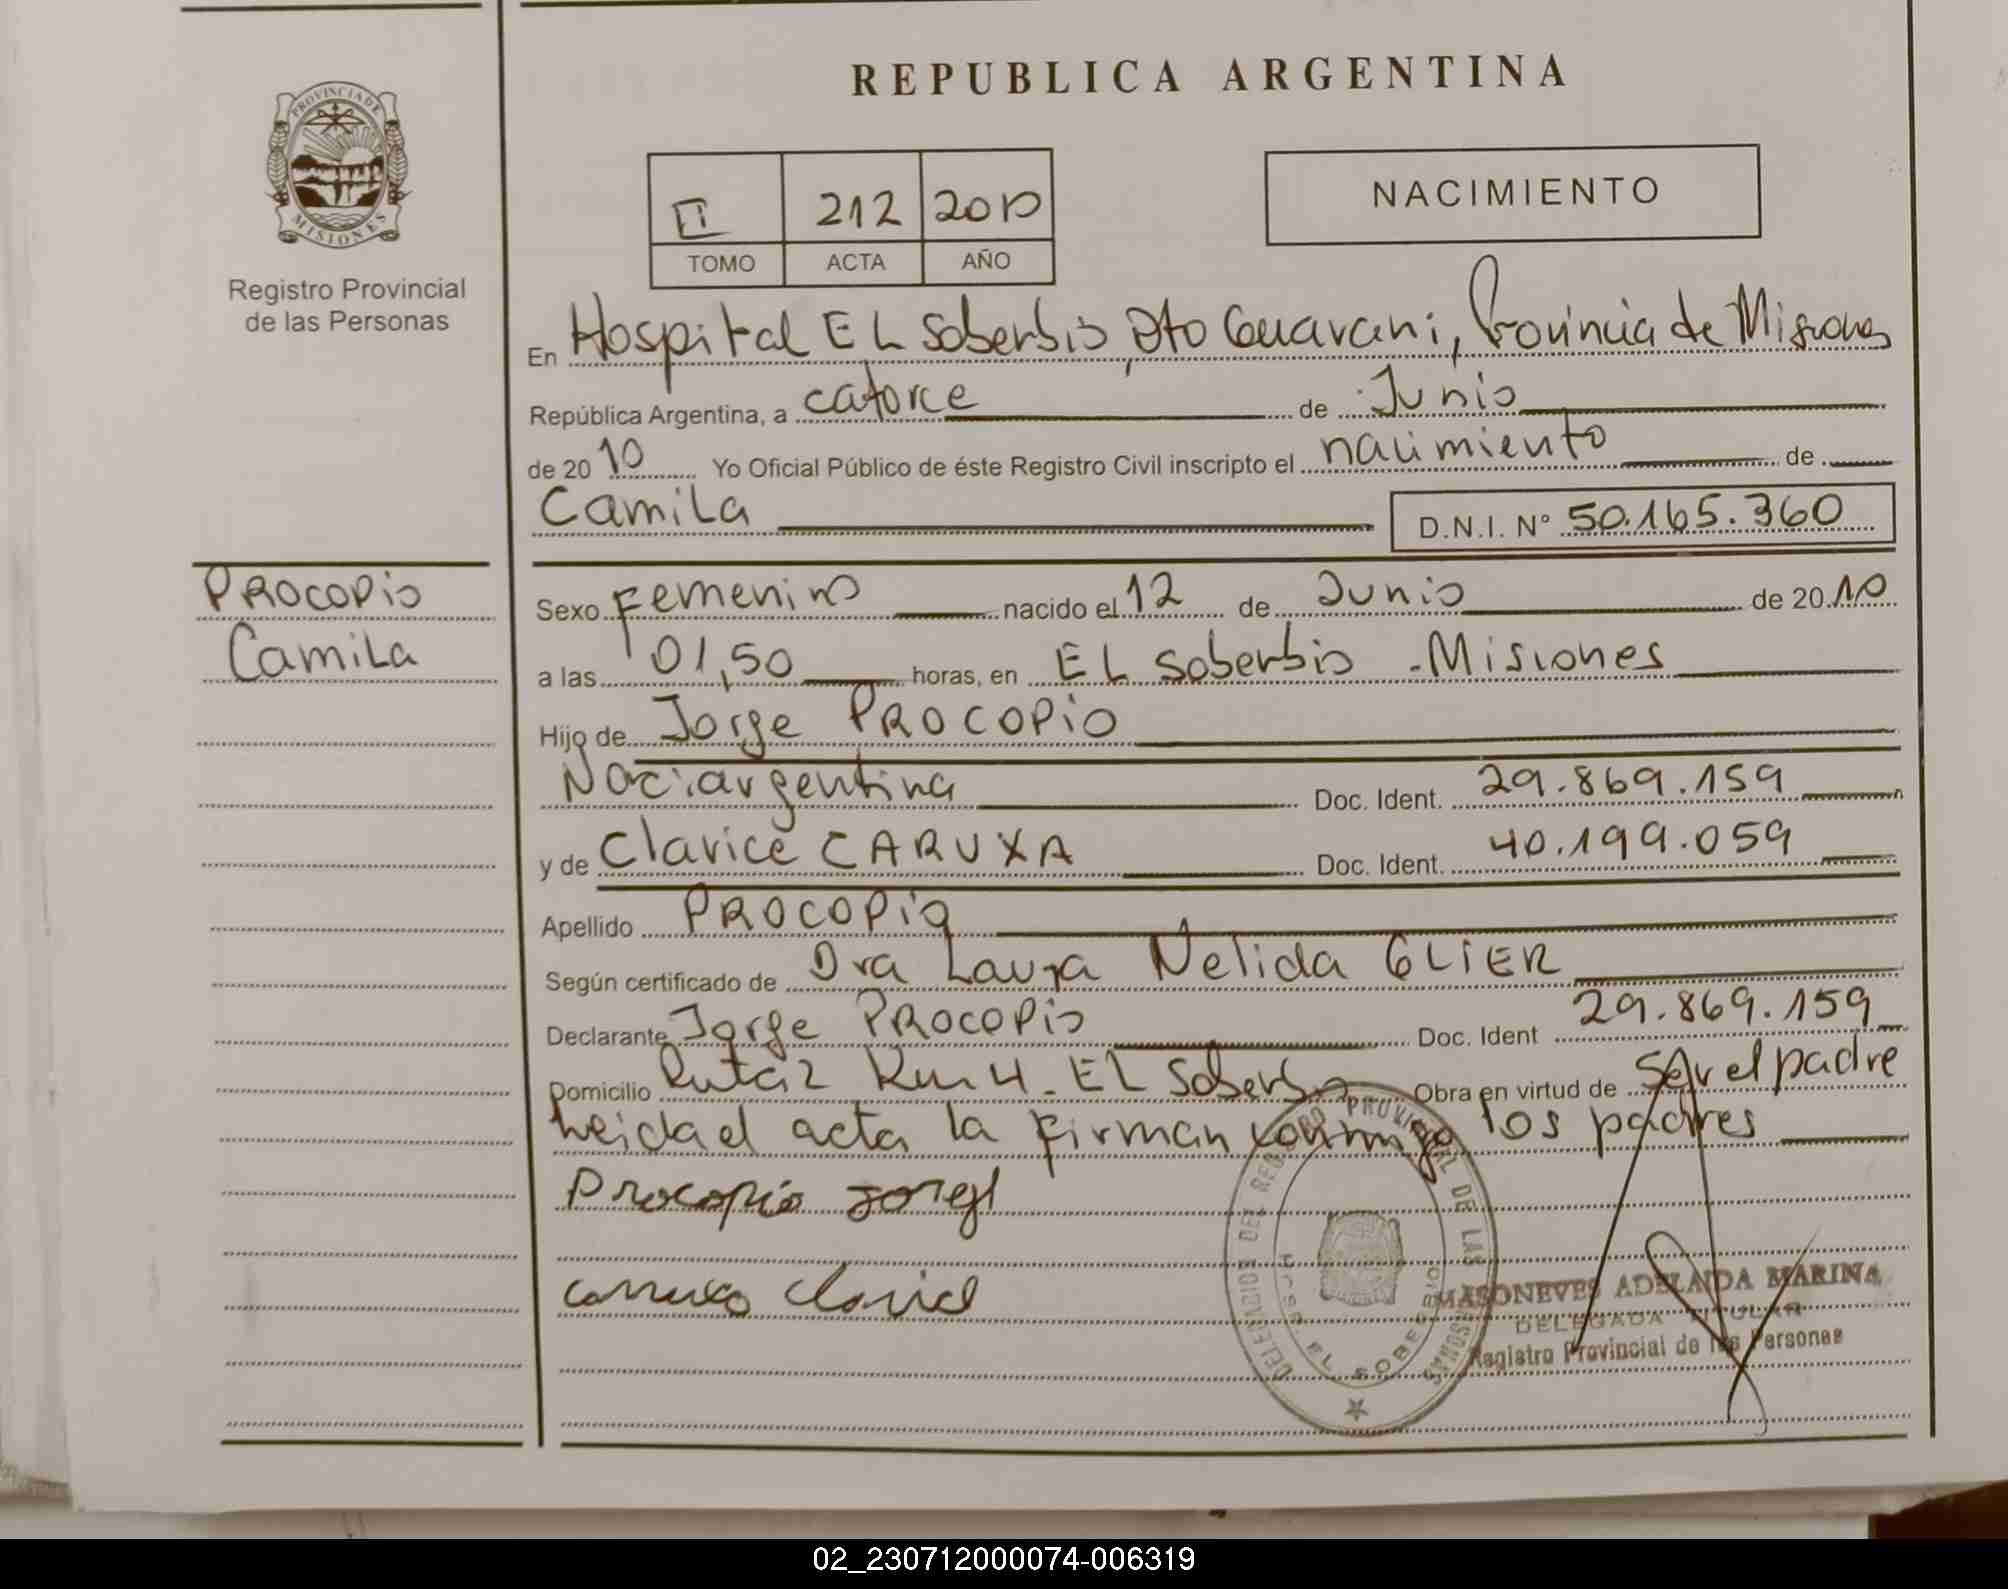 REPUBLICA ARGENTINA
PROVINCIA DE
MISIONES
Registro Provincial
de las Personas
212 2010
TOMO ACTA AÑO
NACIMIENTO
En Hospital EL Soberbio, Dto Guarani, Provincia de Misiones
República Argentina, a catorce de Junio
de 20 10 Yo Oficial Público de éste Registro Civil inscripto el nacimiento de
Camila D.N.I. N° 50.165.360
PROCOPIO
Camila
Sexo Femenino nacido el 12 de Junio de 20 10
a las 01,50 horas, en EL Soberbio - Misiones
Hijo de Jorge PROCOPIO
Naci argentina Doc. Ident. 29.869.159
y de Clarice CARUXA Doc. Ident. 40.199.059
Apellido PROCOPIO
Según certificado de Dra Laura Nelida GLIER
Declarante Jorge PROCOPIO Doc. Ident 29.869.159
Domicilio Ruta 2 Km 4 - EL Soberbio Obra en virtud de Ser el padre
leida el acta la firman conmigo los padres
Procopio Jorge
DELEGACION DEL REGISTRO PROVINCIAL DE LAS PERSONAS
EL SOBERBIO
MASONEVES ADELAIDA MARINA
DELEGADA TITULAR
Registro Provincial de las Personas
02_230712000074-006319